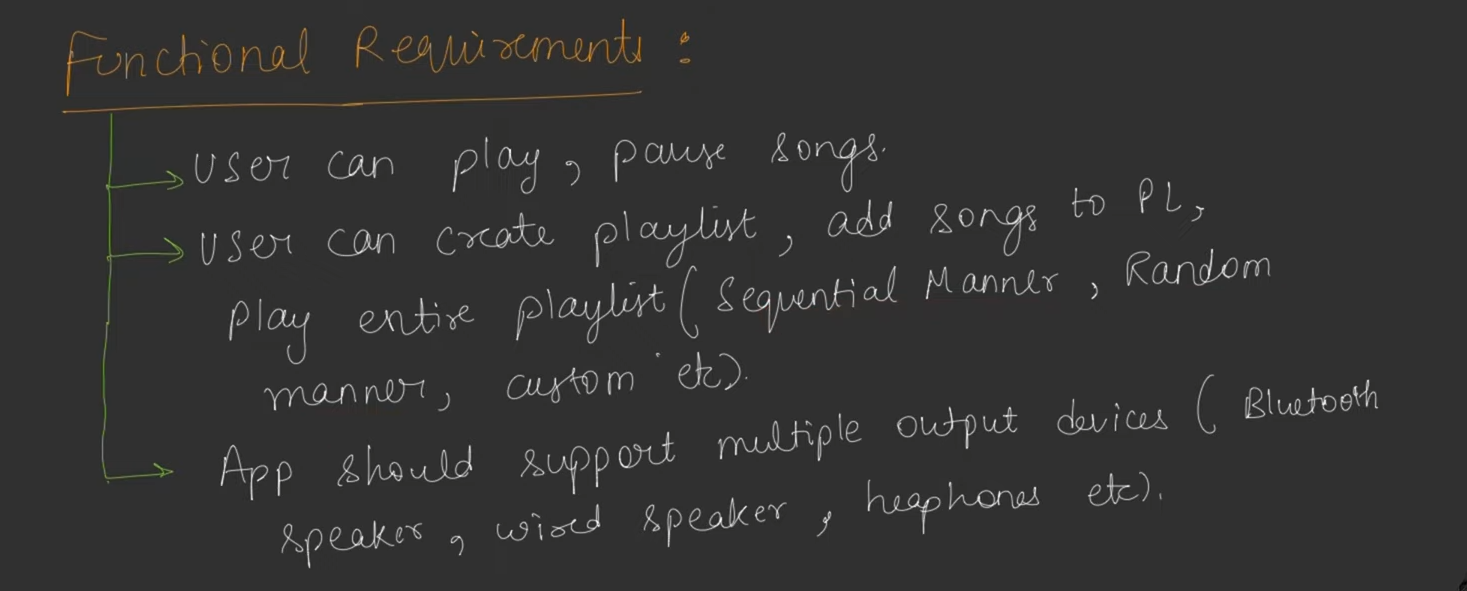 Functional Requirements :
User can play, pause songs.
User can create playlist, add songs to PL,
Play entire playlist ( Sequential Manner, Random
manner, custom etc).
App should support multiple output devices ( Bluetooth
speaker, wired speaker, heaphones etc).